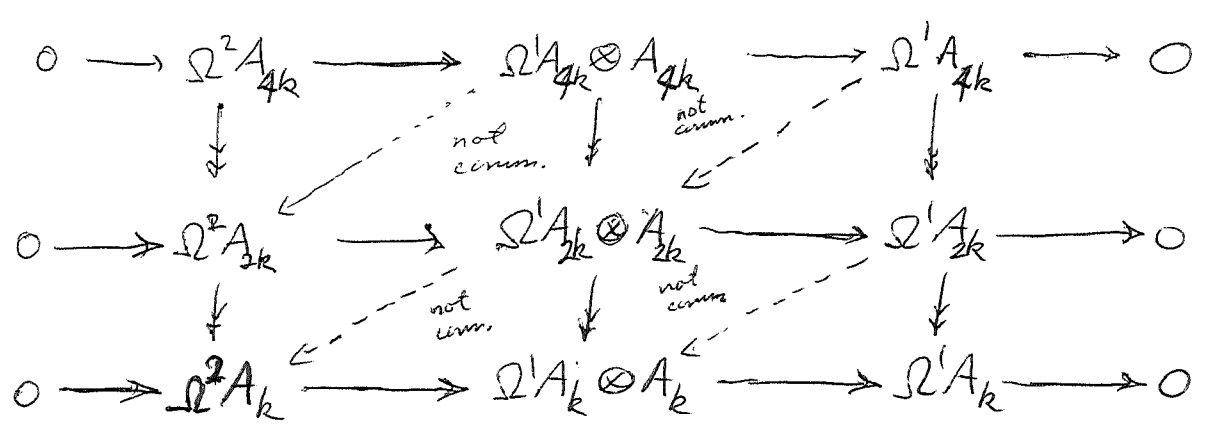 0 → Ω²A₄ₖ → Ω¹A₄ₖ ⊗ A₄ₖ → Ω¹A₄ₖ → 0
not comm. not comm.
0 → Ω²A₂ₖ → Ω¹A₂ₖ ⊗ A₂ₖ → Ω¹A₂ₖ → 0
not comm. not comm
0 → Ω²Aₖ → Ω¹Aₖ ⊗ Aₖ → Ω¹Aₖ → 0